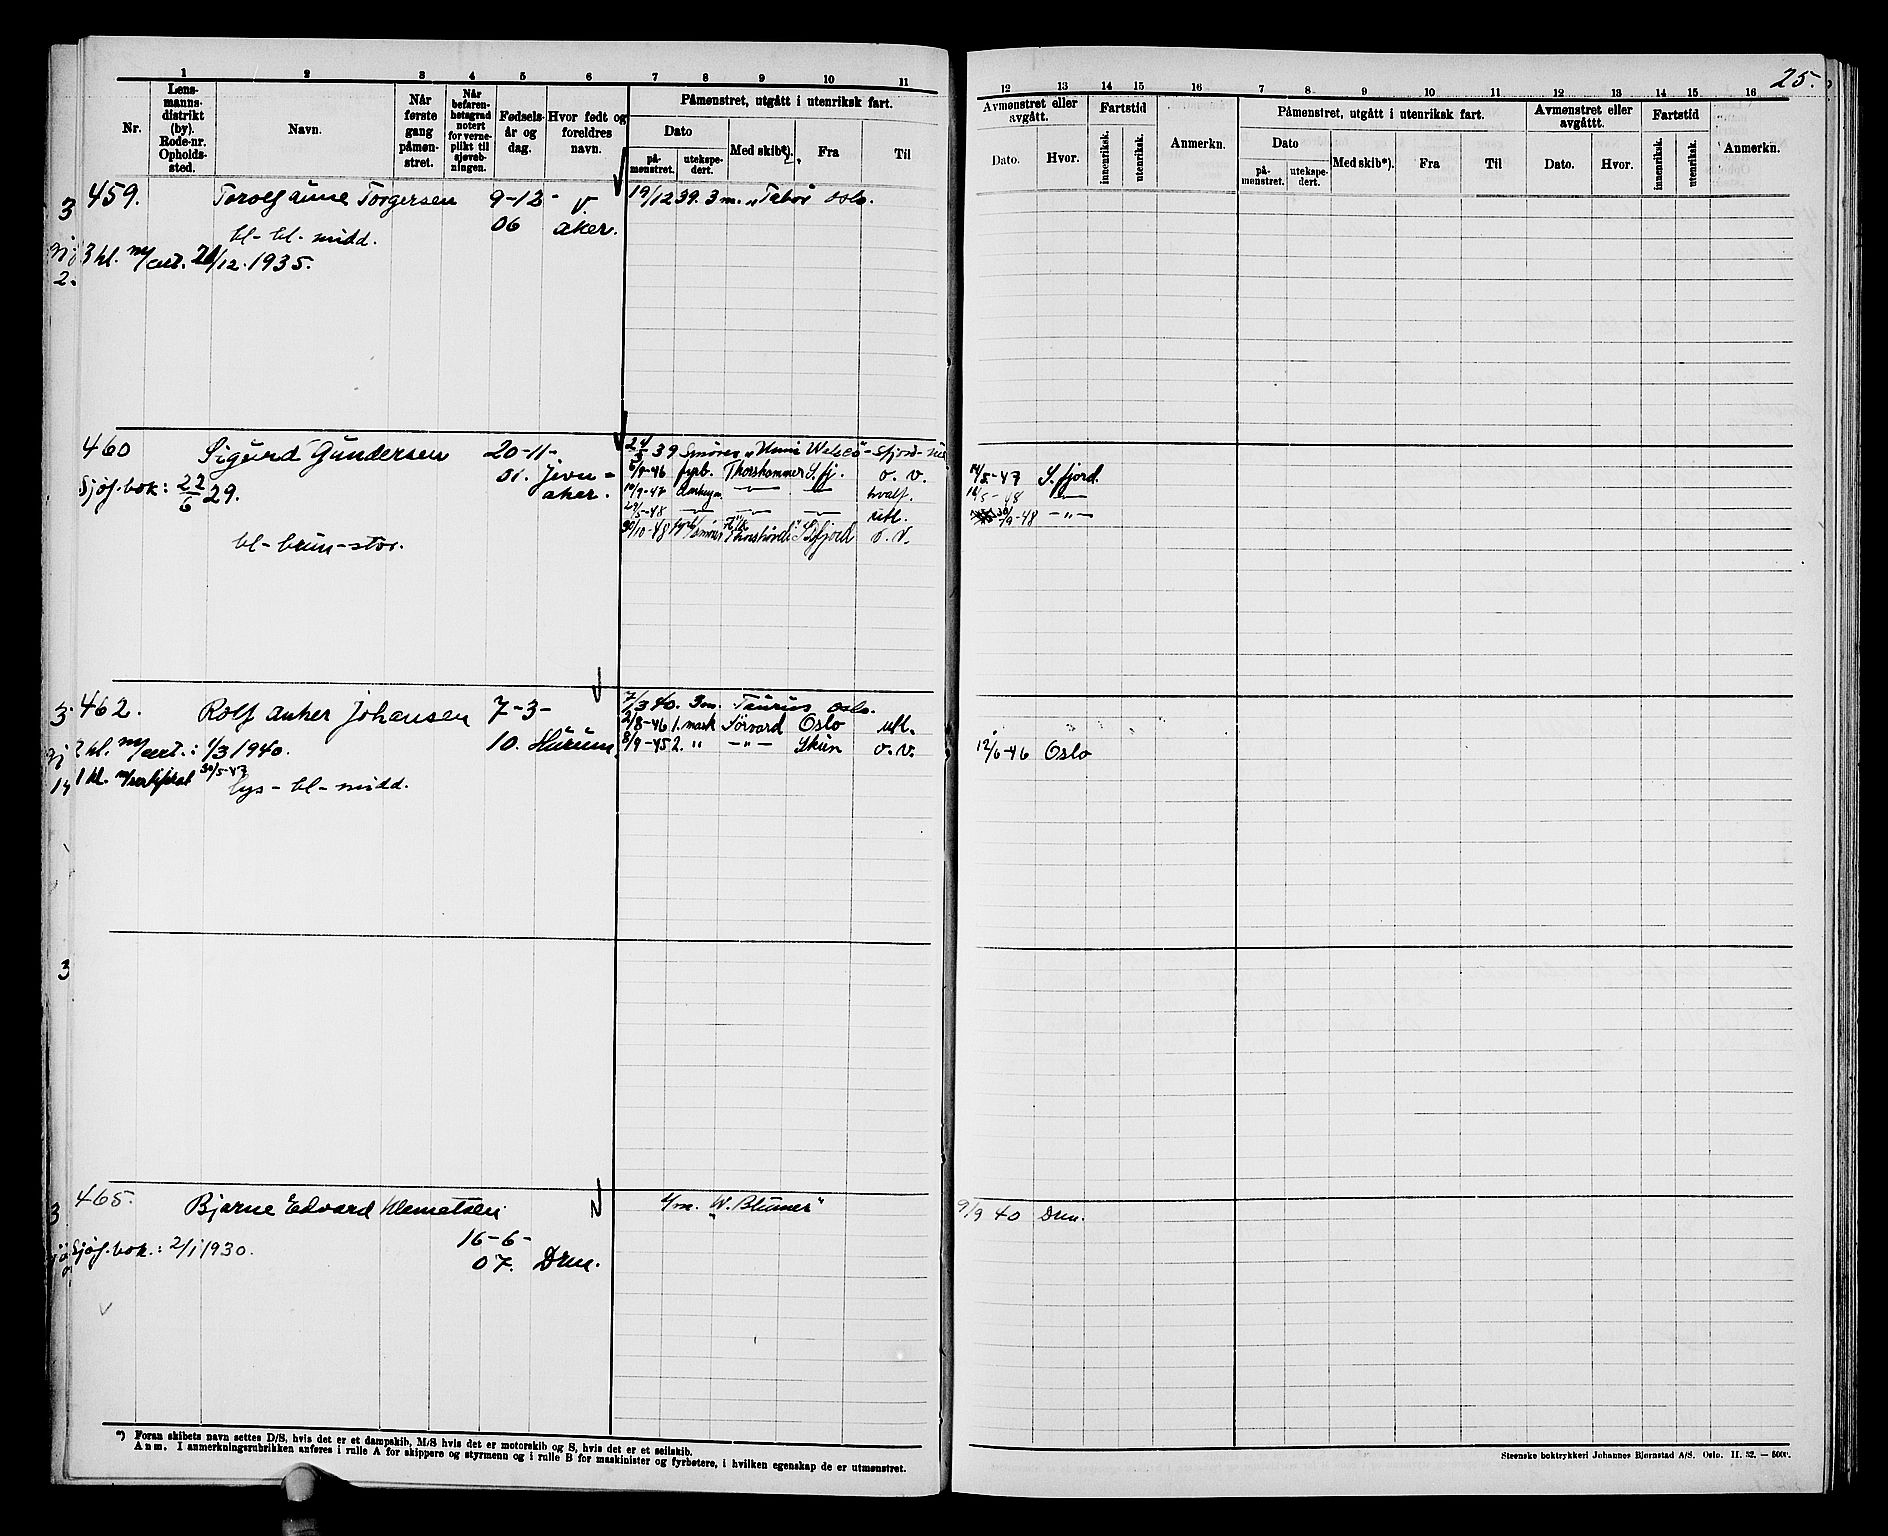 25.
1 2 3 4 5 6 7 8 9 10 11
Nr.
Lens-
manns-
distrikt
(by).
Rode-nr.
Opholds-
sted.
Navn.
Når
første
gang
påmøn-
stret.
Når
befaren-
hetsgrad
notert
for verne-
plikt til
sjøvæb-
ningen.
Fødsels-
år og
dag.
Hvor født og
foreldres
navn.
Påmønstret, utgått i utenriksk fart.
Dato
på-
mønstret.
utekspe-
dert.
Med skib*).
Fra
Til
459. Torolf Aune Torgersen 9-12- V. 19/12 39. 3 m. „Tabor Oslo.
bl- bl- midd. 06 Aker.
3 kl. m/cert. 21/12. 1935.
460 Sigurd Gundersen 20-11- 39 Smører
Sjøf.bok: 22/6 29. 01. Jevn- 6/9-46 fyrb. Thorshammer S.fj. o. v.
aker. 10/9-47 hvalf.
27/5-48 utl.
bl- brun- stor. 30/10-48 S.fjord o. v.
462. Rolf Anker Johansen 7-3- 7/3 40. 3 m. Taurus Oslo.
10. Hurum 2/8-46 1. mask Sørvard Oslo utl.
2 kl. m/cert.: 1/3 1940. 8/9-45 2. " -"- Skien o. v.
1 kl. m/sertifikat 30/5-47
lys- bl- midd.
465. Bjarne Edvard Klemetsen 4/m. „W. Blumer"
16-6-
Sjøf.bok.: 2/1 1930. 07. Drm.
*) Foran skibets navn settes D/S, hvis det er et dampskib, M/S hvis det er motorskib og S, hvis det er et seilskib.
Anm. I anmerkningsrubrikken anføres i rulle A for skippere og styrmenn og i rulle B for maskinister og fyrbøtere, i hvilken egenskap de er utmønstret.
12 13 14 15 16 7 8 9 10 11 12 13 14 15 16
Avmønstret eller
avgått.
Dato. Hvor.
Fartstid
innenriksk. utenriksk.
Anmerkn.
Påmønstret, utgått i utenriksk fart.
Dato
på-
mønstret.
utekspe-
dert.
Med skib*). Fra Til
Avmønstret eller
avgåttt.
Dato. Hvor.
Fartstid
innenriksk. utenriksk.
Anmerkn.
14/5-47 S.fjord.
18/5-48 -"-
30/9-48 -"-
12/6-46 Oslo
9/9 40 Drm.
Steenske boktrykkeri Johannes Bjørnstad A/S. Oslo. II. 32. — 5000.